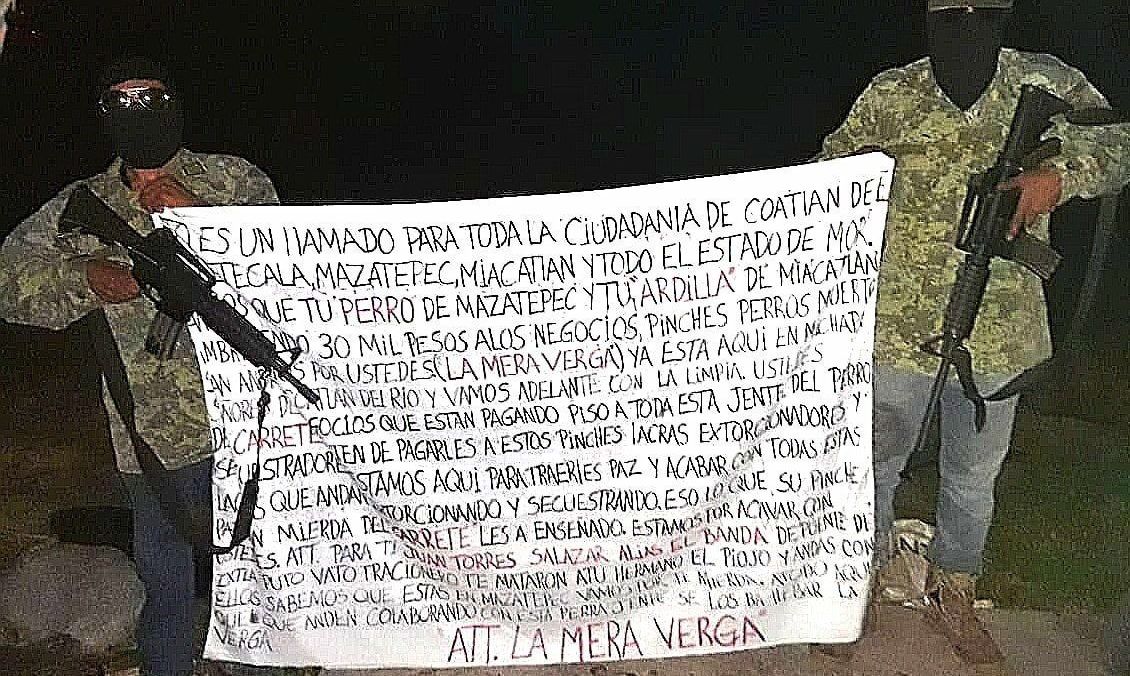 ES UN llAMADO PARA TODA LA CIUDADANIA DE COATlAN DEL
TECALA, MAZATEPEC, MIACATlAN Y TODO EL ESTADO DE MOR.
QUE TU "PERRO DE MAZATEPEC Y TU, "ARDILLA" DE MIACATLAN
30 MIL PESOS A LOS NEGOCIOS, PINCHES PERROS MUERTO
POR USTEDES (LA MERA VERGA) YA ESTA AQUI EN
DEL RIO Y VAMOS ADELANTE CON LA LIMPIA, USTEDES
DE CARRETE QUE ESTAN PAGANDO PISO A TODA ESTA JENTE DEL PERRO
DE PAGARLES A ESTOS PINCHES lACRAS EXTORCIONADORO Y
QUE ANDAN ESTAMOS AQUI PARA TRAERlES PAZ Y ACABAR CON TODAS ESTAS
Y SECUESTRANDO. ESO lO QUE SU PINCHE
MIERDA DEL CARRETE LES A ENSEÑADO. ESTAMOS POR ACAVAR CON
ATT. PARA TI JUAN TORRES SALAZAR AlIAS EL BANDA DE PUENTE DE
IXTLA PUTO VATO TE MATARON A TU HERMANO EL PIOJO Y ANDAS CON
ELLOS SABEMOS QUE ESTAS EN MAZATEPEC VAMOS POR TI MIERDA. A TODO AQUE
QUE ANDEN COLABORANDO CON ESTA PERRA JENTE SE LOS BA LA
VERGA
"ATT. LA MERA VERGA"